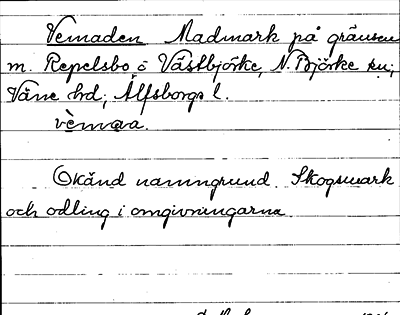 Vemaden Madmark på gränsen
m. Repelsbo o Västbjörke, N. Björke sn;
Väne hd; Älfsborgs l.
Okänd namngrund. Skogsmark
och odling i omgivningarna.